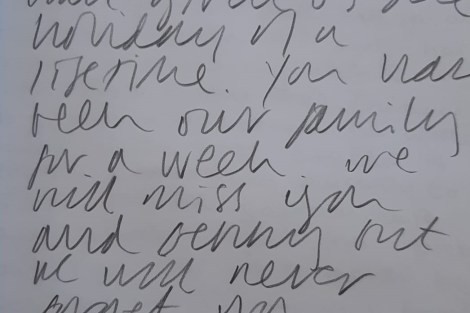 holiday of a
lifetime. You have
been our family
for a week. we
will miss you
and but
we will never
forget you